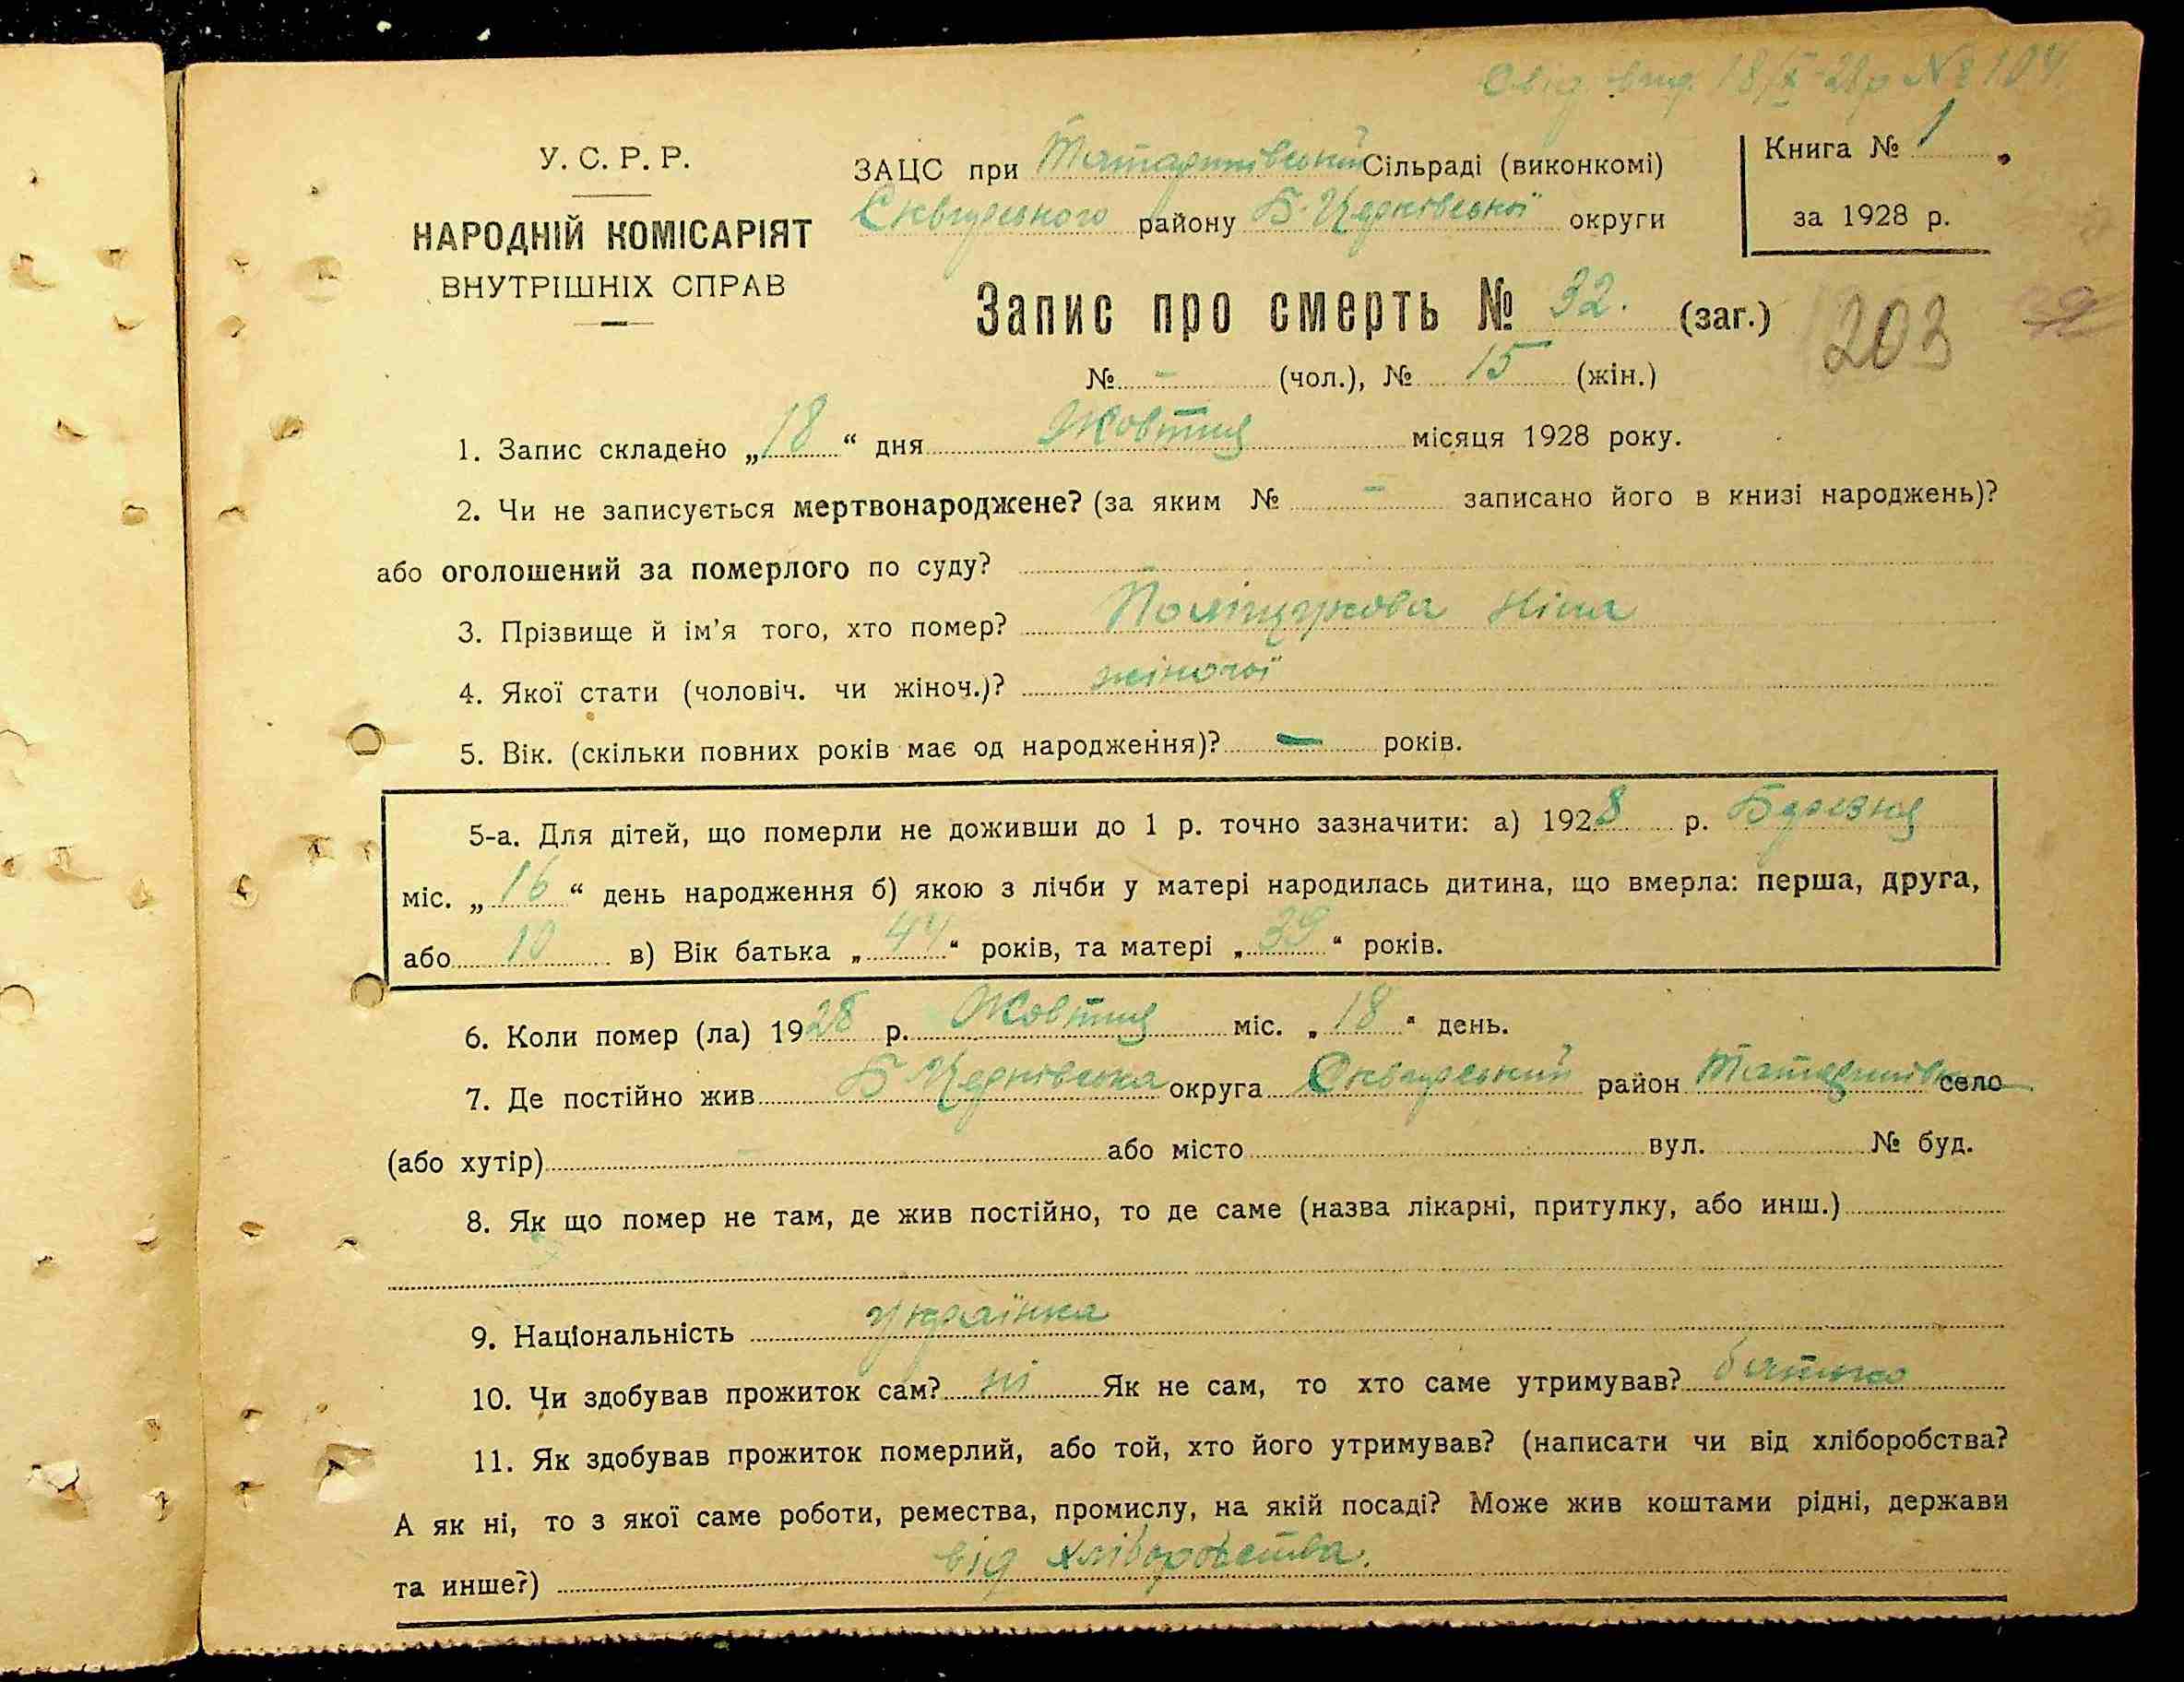 Свід. вид. 18/X-28р № 104
У. С. Р. Р.
НАРОДНІЙ КОМІСАРІЯТ
ВНУТРІШНІХ СПРАВ
ЗАЦС при Татаринівській Сільраді (виконкомі)
Сквирського району Б-Церківської округи
Книга № 1
за 1928 р.
Запис про смерть № 32. (заг.)
203
39
№ - (чол.), № 15 (жін.)
1. Запис складено „18“ дня Жовтня місяця 1928 року.
2. Чи не записується мертвонароджене? (за яким № - записано його в книзі народжень)?
або оголошений за померлого по суду?
3. Прізвище й ім'я того, хто помер? Поліщукова Ніна
4. Якої стати (чоловіч. чи жіноч.)? жіночої
5. Вік. (скільки повних років має од народження)? — років.
5-а. Для дітей, що померли не доживши до 1 р. точно зазначити: а) 1928 р. Березня
міс. „16“ день народження б) якою з лічби у матері народилась дитина, що вмерла: перша, друга,
або 10 в) Вік батька „44“ років, та матері „39“ років.
6. Коли помер (ла) 1928 р. Жовтня міс. „18“ день.
7. Де постійно жив Б Церківська округа Сквирський район Татаринівка село
(або хутір) - або місто вул. № буд.
8. Як що помер не там, де жив постійно, то де саме (назва лікарні, притулку, або инш.)
9. Національність українка
10. Чи здобував прожиток сам? ні Як не сам, то хто саме утримував? батько
11. Як здобував прожиток померлий, або той, хто його утримував? (написати чи від хліборобства?
А як ні, то з якої саме роботи, ремества, промислу, на якій посаді? Може жив коштами рідні, держави
та инше?) від хліборобства.